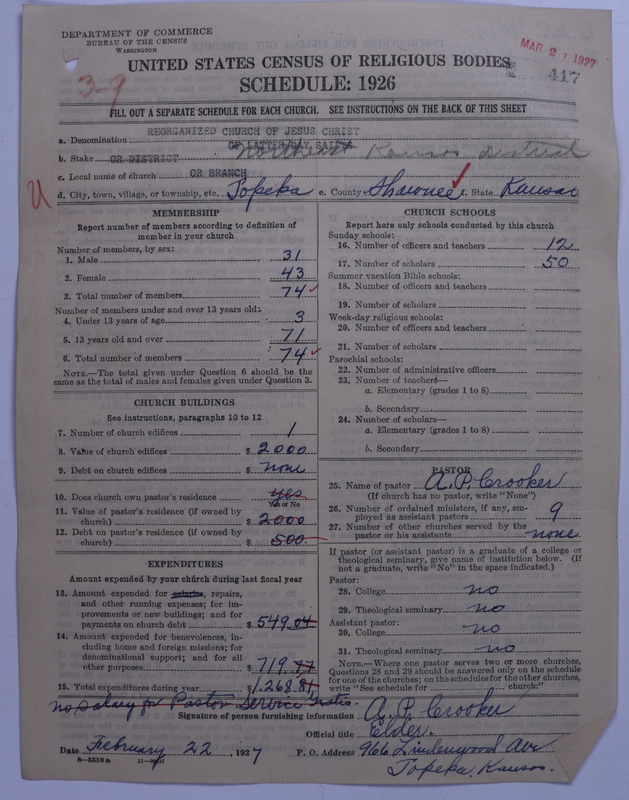 DEPARTMENT OF COMMERCE
BUREAU OF THE CENSUS
WASHINGTON
MAR 21 1927
UNITED STATES CENSUS OF RELIGIOUS BODIES
417
3-9
SCHEDULE: 1926
FILL OUT A SEPARATE SCHEDULE FOR EACH CHURCH. SEE INSTRUCTIONS ON THE BACK OF THIS SHEET
a. Denomination REORGANIZED CHURCH OF JESUS CHRIST
OF LATTER DAY SAINTS
b. Stake OR DISTRICT Northeast Kansas District
c. Local name of church OR BRANCH
d. City, town, village, or township, etc. Topeka e. County Shawnee f. State Kansas
MEMBERSHIP
Report number of members according to definition of
member in your church
Number of members, by sex:
1. Male 31
2. Female 43
3. Total number of members 74
Number of members under and over 13 years old:
4. Under 13 years of age 3
5. 13 years old and over 71
6. Total number of members 74
NOTE.—The total given under Question 6 should be
same as the total of males and females given under Question 3.
CHURCH BUILDINGS
See instructions, paragraphs 10 to 12
7. Number of church edifices 1
8. Value of church edifices $ 2000
9. Debt on church edifices $ none
10. Does church own pastor's residence yes
Yes or No
11. Value of pastor's residence (if owned by
church) $ 2000
12. Debt on pastor's residence (if owned by
church) $ 500
EXPENDITURES
Amount expended by your church during last fiscal year
13. Amount expended for salaries, repairs,
and other running expenses; for im-
provements or new buildings; and for
payments on church debt $ 549.04
14. Amount expended for benevolences, in-
cluding home and foreign missions; for
denominational support; and for all
other purposes $ 719.77
15. Total expenditures during year $ 1,268.81
no salary for Pastor Service Gratis.
CHURCH SCHOOLS
Report here only schools conducted by this church
Sunday schools:
16. Number of officers and teachers 12
17. Number of scholars 50
Summer vacation Bible schools:
18. Number of officers and teachers
19. Number of scholars
Week-day religious schools:
20. Number of officers and teachers
21. Number of scholars
Parochial schools:
22. Number of administrative officers
23. Number of teachers—
a. Elementary (grades 1 to 8)
b. Secondary
24. Number of scholars—
a. Elementary (grades 1 to 8)
b. Secondary
PASTOR
25. Name of pastor A. P. Crooker
(If church has no pastor, write "None")
26. Number of ordained ministers, if any, em-
ployed as assistant pastors 9
27. Number of other churches served by the
pastor or his assistants none
If pastor (or assistant pastor) is a graduate of a college or
theological seminary, give name of institution below. (If
not a graduate, write "No" in the space indicated.)
Pastor:
28. College no
29. Theological seminary no
Assistant pastor:
30. College no
31. Theological seminary no
NOTE.—Where one pastor serves two or more churches,
Questions 28 and 29 should be answered only on the schedule
for one of the churches; on the schedules for the other churches,
write "See schedule for church:"
Signature of person furnishing information A. P. Crooker
Official title Elder.
Date February 22, 1927 P. O. Address 966 Lindenwood Ave
8-5518a
Topeka, Kansas.